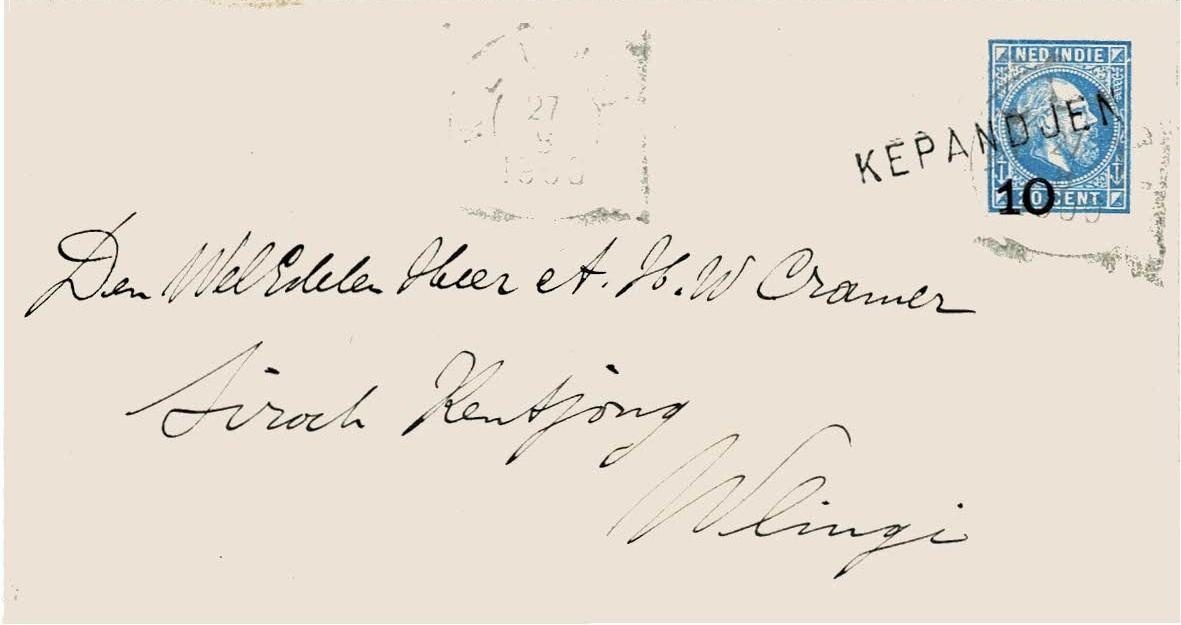 27
NED. INDIE
KEPANDJEN
10
20 CENT
Den WelEdelen Heer A. H. W Cramer
Siroch Kentjong
Wlingi